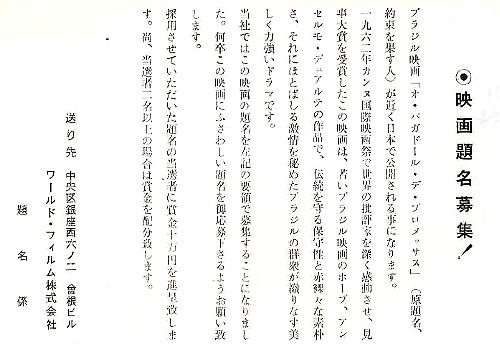 ◉映画題名募集!
ブラジル映画「オ・パガドール・デ・プロメッサス」(原題名、
約束を果す人)が近く日本で公開される事になります。
一九六二年カンヌ国際映画祭で世界の批評家を深く感動させ、見
事大賞を受賞したこの映画は、若いブラジル映画のホープ、アン
セルモ・デュアルテの作品で、伝統を守る保守性と赤裸々な素朴
さ、それにほとばしる激情を秘めたブラジルの群衆が織りなす美
しく力強いドラマです。
当社ではこの映画の題名を左記の要領で募集することになりまし
た。何卒この映画にふさわしい題名を御応募下さるようお願い致
します。
採用させていただいた題名の当選者に賞金十万円を進呈致しま
す。尚、当選者二名以上の場合は賞金を配分致します。
送り先 中央区銀座西六ノ二 曾根ビル
ワールド・フィルム株式会社
題名係